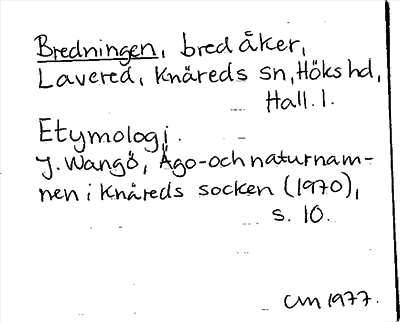 Bredningen, bred åker,
Lavered, Knäreds sn, Höks hd,
Hall. l.
Etymologi.
J. Wangö, Ägo- och naturnam-
nen i Knäreds socken (1970),
s. 10.
CM 1977.